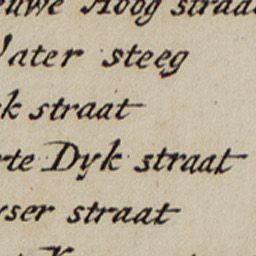 euwe Hoog straat
Water steeg
k straat
rte Dyk straat
yser straat